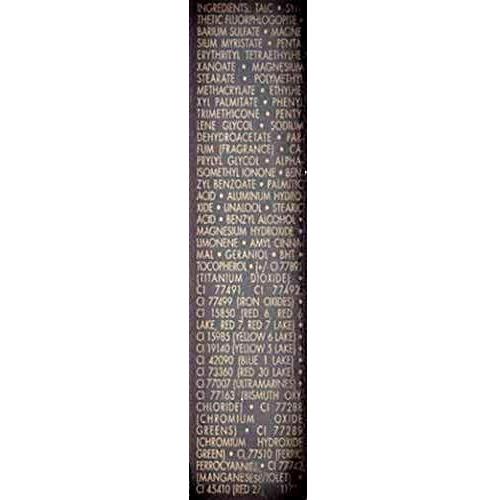 INGREDIENTS: TALC • SYN
THETIC FLUORPHLOGOPITE •
BARIUM SULFATE • MAGNE
SIUM MYRISTATE • PENTA
ERYTHRITYL TETRAETHYLHE
XANOATE • MAGNESIUM
STEARATE • POLYMETHYL
METHACRYLATE • ETHYLHE
XYL PALMITATE • PHENYL
TRIMETHICONE • PENTY
LENE GLYCOL • SODIUM
DEHYDROACETATE • PAR
FUM (FRAGRANCE) • CA
PRYLYL GLYCOL • ALPHA-
ISOMETHYL IONONE • BEN
ZYL BENZOATE • PALMITIC
ACID • ALUMINUM HYDRO
XIDE • LINALOOL • STEARIC
ACID • BENZYL ALCOHOL •
MAGNESIUM HYDROXIDE •
LIMONENE • AMYL CINNA
MAL • GERANIOL • BHT •
TOCOPHEROL • [+/- CI 77891
(TITANIUM DIOXIDE) •
CI 77491, CI 77492,
CI 77499 (IRON OXIDES) •
CI 15850 (RED 6, RED 6
LAKE, RED 7, RED 7 LAKE) •
CI 15985 (YELLOW 6 LAKE) •
CI 19140 (YELLOW 5 LAKE) •
CI 42090 (BLUE 1 LAKE) •
CI 73360 (RED 30 LAKE) •
CI 77007 (ULTRAMARINES) •
CI 77163 (BISMUTH OXY
CHLORIDE) • CI 77288
(CHROMIUM OXIDE
GREENS) • CI 77289
(CHROMIUM HYDROXIDE
GREEN) • CI 77510 (FERRIC
FERROCYANIDE) • CI 77742
(MANGANESE VIOLET) •
CI 45410 (RED 27